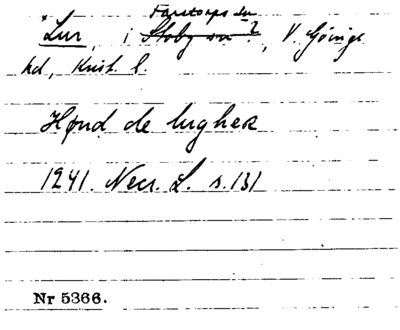 Farstorps sn
Lur, i Stoby sn ?, V. Göinge
hd, Krist. l.
Hønd de lugher
1241. Necr. L. s. 131
Nr 5366.